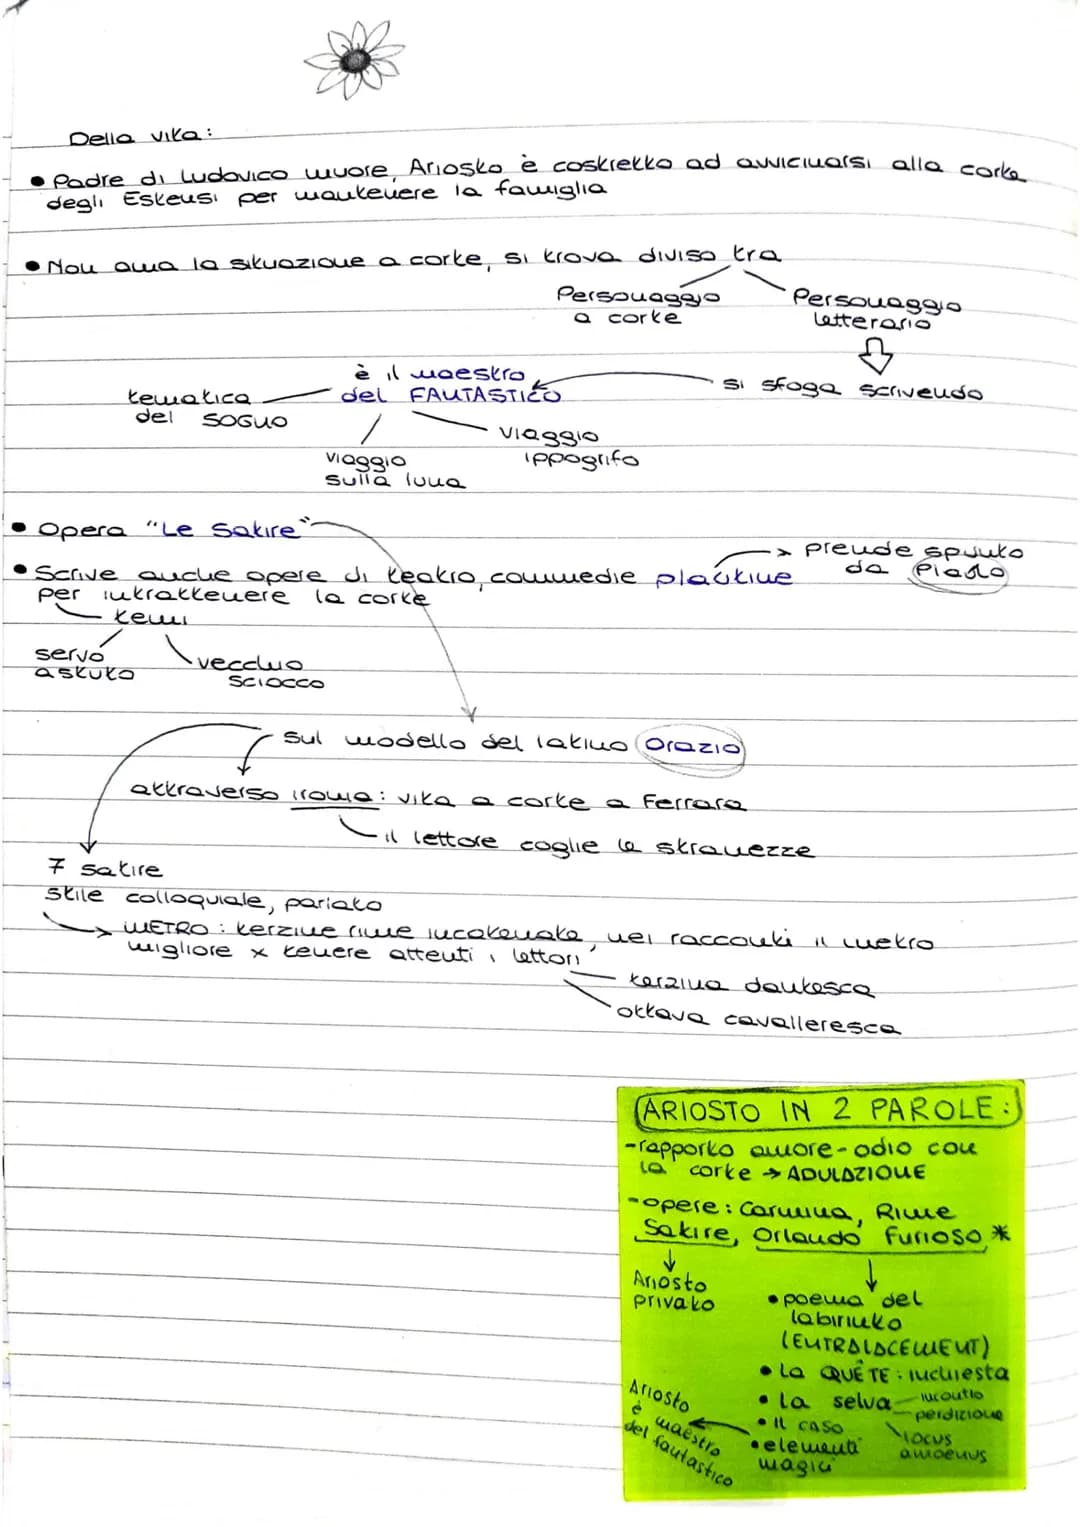 Della vita:
• Padre di Ludovico muore, Ariosto è costretto ad avvicinarsi alla corte
degli Estensi per mantenere la famiglia
• Non ama la situazione a corte, si trova diviso tra
Personaggio
a corte
Personaggio
letterario
si sfoga scrivendo
è il maestro
del FANTASTICO
tematica
del SOGNO
viaggio
sulla luna
viaggio
ippogrifo
• Opera "Le Satire"
• Scrive anche opere di teatro, commedie plautine
per intrattenere la corte
→ prende spunto
da Plauto
temi
servo
astuto
vecchio
sciocco
sul modello del latino Orazio
attraverso ironia: vita a corte a Ferrara
il lettore coglie le stranezze
7 satire
stile colloquiale, parlato
→ METRO: terzine rime incatenate, nei racconti il metro
migliore x tenere attenti i lettori
terzina dantesca
ottava cavalleresca
ARIOSTO IN 2 PAROLE:
-rapporto amore-odio con
la corte → ADULAZIONE
-opere: Carmina, Rime
Satire, Orlando Furioso *
Ariosto
privato
• poema del
labirinto
(ENTRALACEMENT)
• La QUÊTE: inchiesta
• La selva
incontro
perdizione
locus
amoenus
• Il caso
• elementi
magici
Ariosto
è maestro
del fantastico